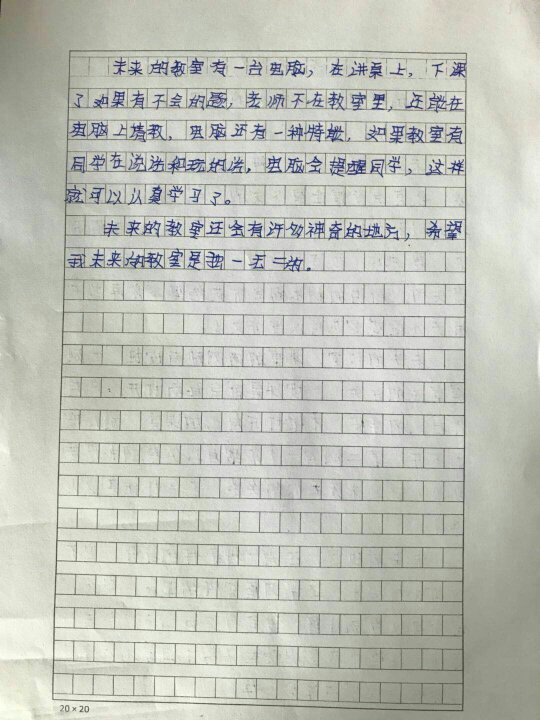 未来的教室有一台电脑，在讲桌上，下课
了如果有不会的题，老师不在教室里，还能在
电脑上请教，电脑还有一种特徵，如果教室有
同学在说话和玩的话，电脑会提醒同学，这样
就可以认真学习了。
未来的教室还会有许多神奇的地方，希望
我未来的教室是独一无二的。
20×20